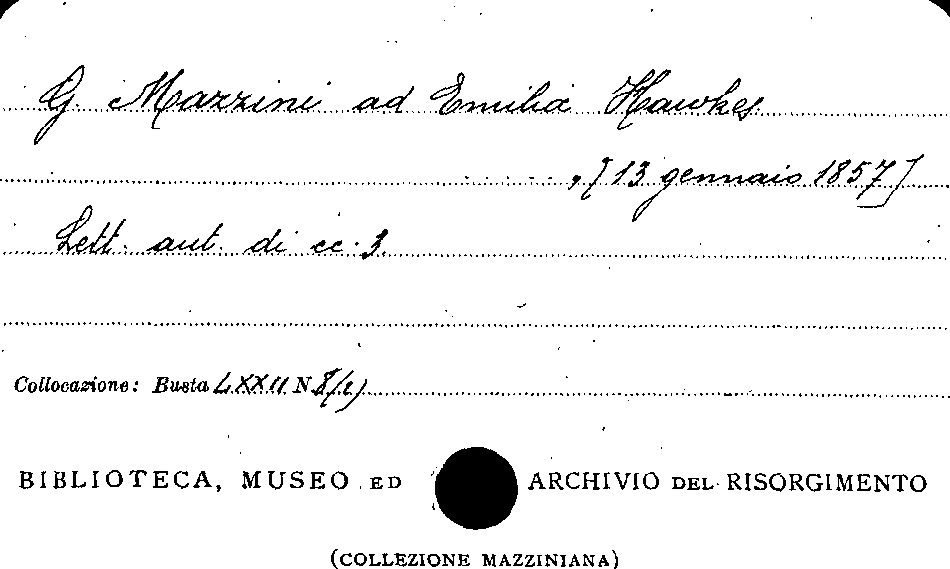 G. Mazzini ad Emilia Hawkes
, [13 gennaio 1857]
Lett. aut. di cc. 3.
Collocazione: Busta LXXII N 8/(2)
BIBLIOTECA, MUSEO ED ARCHIVIO DEL RISORGIMENTO
(COLLEZIONE MAZZINIANA)